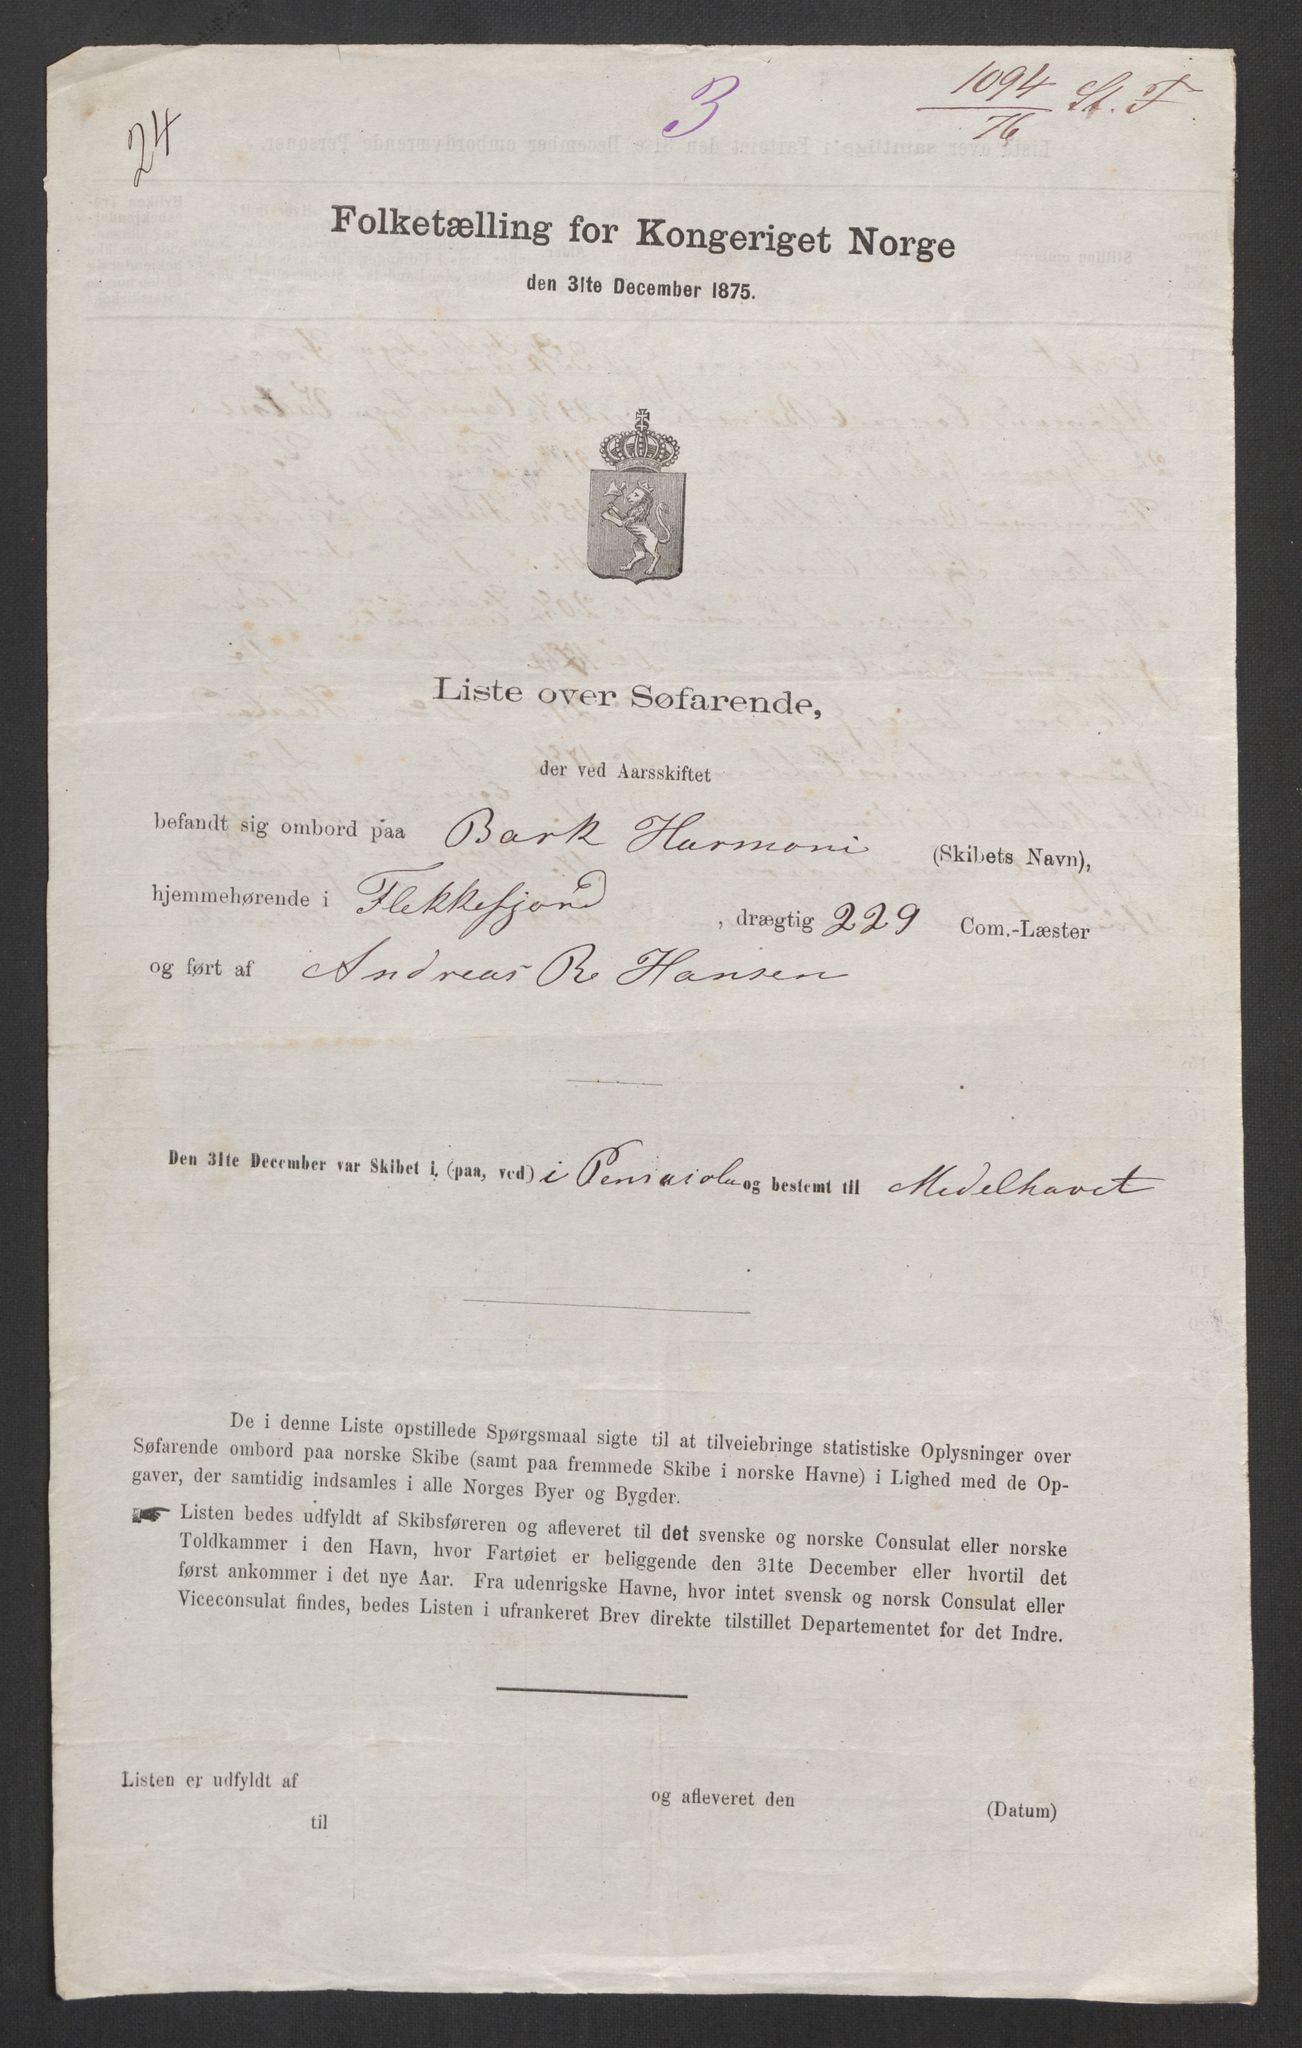 24
3
1094 St. F
76
Folketælling for Kongeriget Norge
den 31te December 1875.
Liste over Søfarende,
der ved Aarsskiftet
befandt sig ombord paa Bark Harmoni (Skibets Navn),
hjemmehørende i Flekkefjord, drægtig 229 Com.-Læster
og ført af Andreas R Hansen
Den 31te December var Skibet i, (paa, ved) i Pensacola og bestemt til Medelhavet
De i denne Liste opstillede Spørgsmaal sigte til at tilveiebringe statistiske Oplysninger over
Søfarende ombord paa norske Skibe (samt paa fremmede Skibe i norske Havne) i Lighed med de Op-
gaver, der samtidig indsamles i alle Norges Byer og Bygder.
☛ Listen bedes udfyldt af Skibsføreren og afleveret til det svenske og norske Consulat eller norske
Toldkammer i den Havn, hvor Fartøiet er beliggende den 31te December eller hvortil det
først ankommer i det nye Aar. Fra udenrigske Havne, hvor intet svensk og norsk Consulat eller
Viceconsulat findes, bedes Listen i ufrankeret Brev direkte tilstillet Departementet for det Indre.
Listen er udfyldt af og afleveret den (Datum)
til